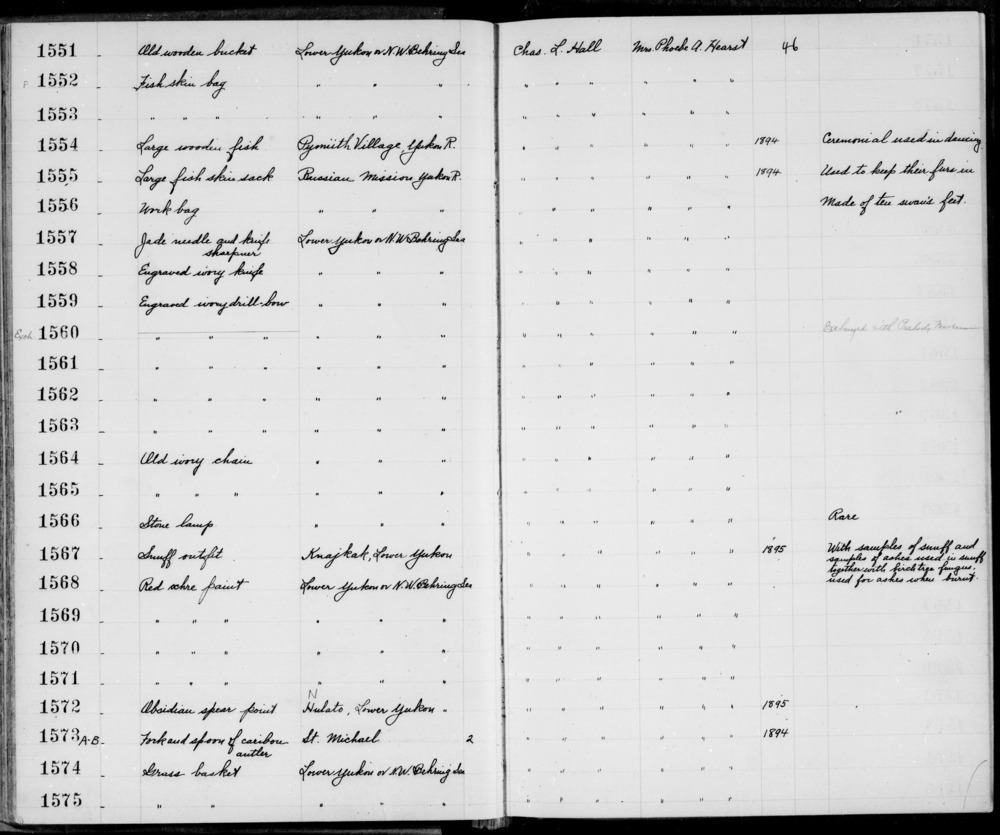 1551 - Old wooden bucket Lower Yukon or N.W. Behring Sea Chas. L. Hall Mrs. Phoebe A. Hearst 46
1552 - Fish skin bag " " " " " " " " "
1553 - " " " " " " " " " " " "
1554 - Large wooden fish Village, Yukon R. " " " " " " 1894 Ceremonial used in dancing
1555 - Large fish skin sack Russian Mission, Yukon R. " " " " " " 1894 Used to keep their furs in
1556 - Work bag " " " " " " " " Made of ten swan's feet.
1557 - Jade needle and knife Lower Yukon or N.W. Behring Sea " " " " " "
sharpener
1558 - Engraved ivory knife " " " " " " " " "
1559 - Engraved ivory drill-bow " " " " " " " " "
Exch 1560 - " " " " " " " " " " " " Exchanged with Peabody Museum
1561 - " " " " " " " " " " " "
1562 - " " " " " " " " " " " "
1563 - " " " " " " " " " " " "
1564 - Old ivory chain " " " " " " " " "
1565 - " " " " " " " " " " " "
1566 - Stone lamp " " " " " " " " " Rare
1567 - Snuff outfit Knajkak, Lower Yukon " " " " " " 1895 With samples of snuff and
samples of ashes used in snuff
together with birch tree fungus,
used for ashes when burnt.
1568 - Red ochre paint Lower Yukon or N.W. Behring Sea " " " " " "
1569 - " " " " " " " " " " " "
1570 - " " " " " " " " " " " "
1571 - " " " " " " " " " " " "
N
1572 - Obsidian spear point Hulato, Lower Yukon " " " " " " " 1895
1573 A-B - Fork and spoon of caribou St. Michael 2 " " " " " " 1894
antler
1574 - Grass basket Lower Yukon or N.W. Behring Sea " " " " " "
1575 - " " " " " " " " " " "